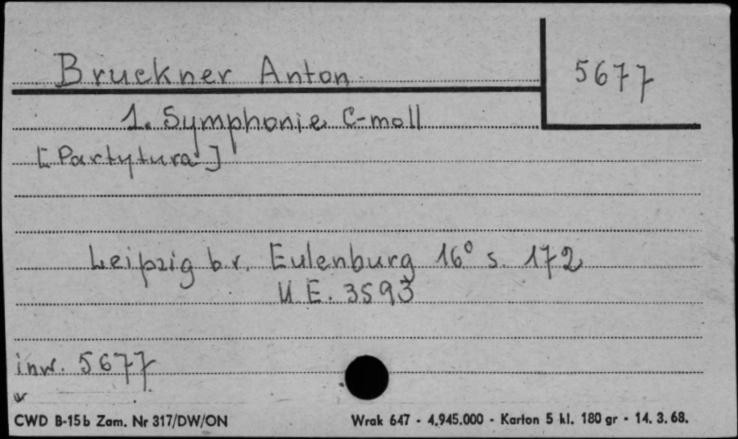 Bruckner Anton
5677
1. Symphonie C-moll
[Partytura]
Leipzig b.r. Eulenburg 16° s. 172
U.E. 3593
inw. 5677
CWD B-15b Zam. Nr 317/DW/ON
Wrak 647 - 4.945.000 - Karton 5 kl. 180 gr - 14. 3. 68.